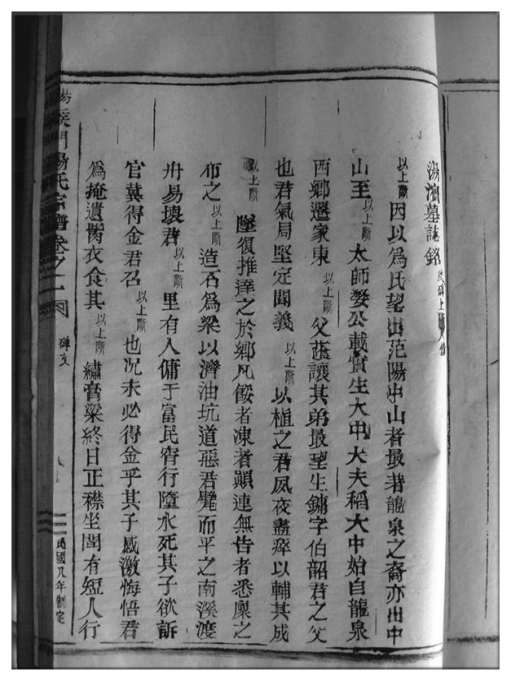 湯濱墓誌銘 此碑上斷
以上斷 因以為氏望出范陽中山者最著龍泉之裔亦出中
山至 以上斷 太師娶公載實生大中大夫稻大中始自龍泉
西鄉遷家東 以上斷 父蔭讓其弟最型生鏞字伯韶君之父
也君氣局堅定聞義 以上斷 以植之君夙夜盡瘁以輔其成
以上斷 墜復推達之於鄉凡餒者凍者顛連無告者悉廩之
布之 以上斷 造石為梁以濟油坑道惡君甓而平之南溪渡
舟易壞君 以上斷 里有入傭于富民宵行墮水死其子欲訴
官冀得金君召 以上斷 也况未必得金乎其子感激悔悟君
為掩遺衣食其 以上斷 繡膏粱終日正襟坐閭有短人行
湯氏宗譜卷之二 碑文 民國八年制定